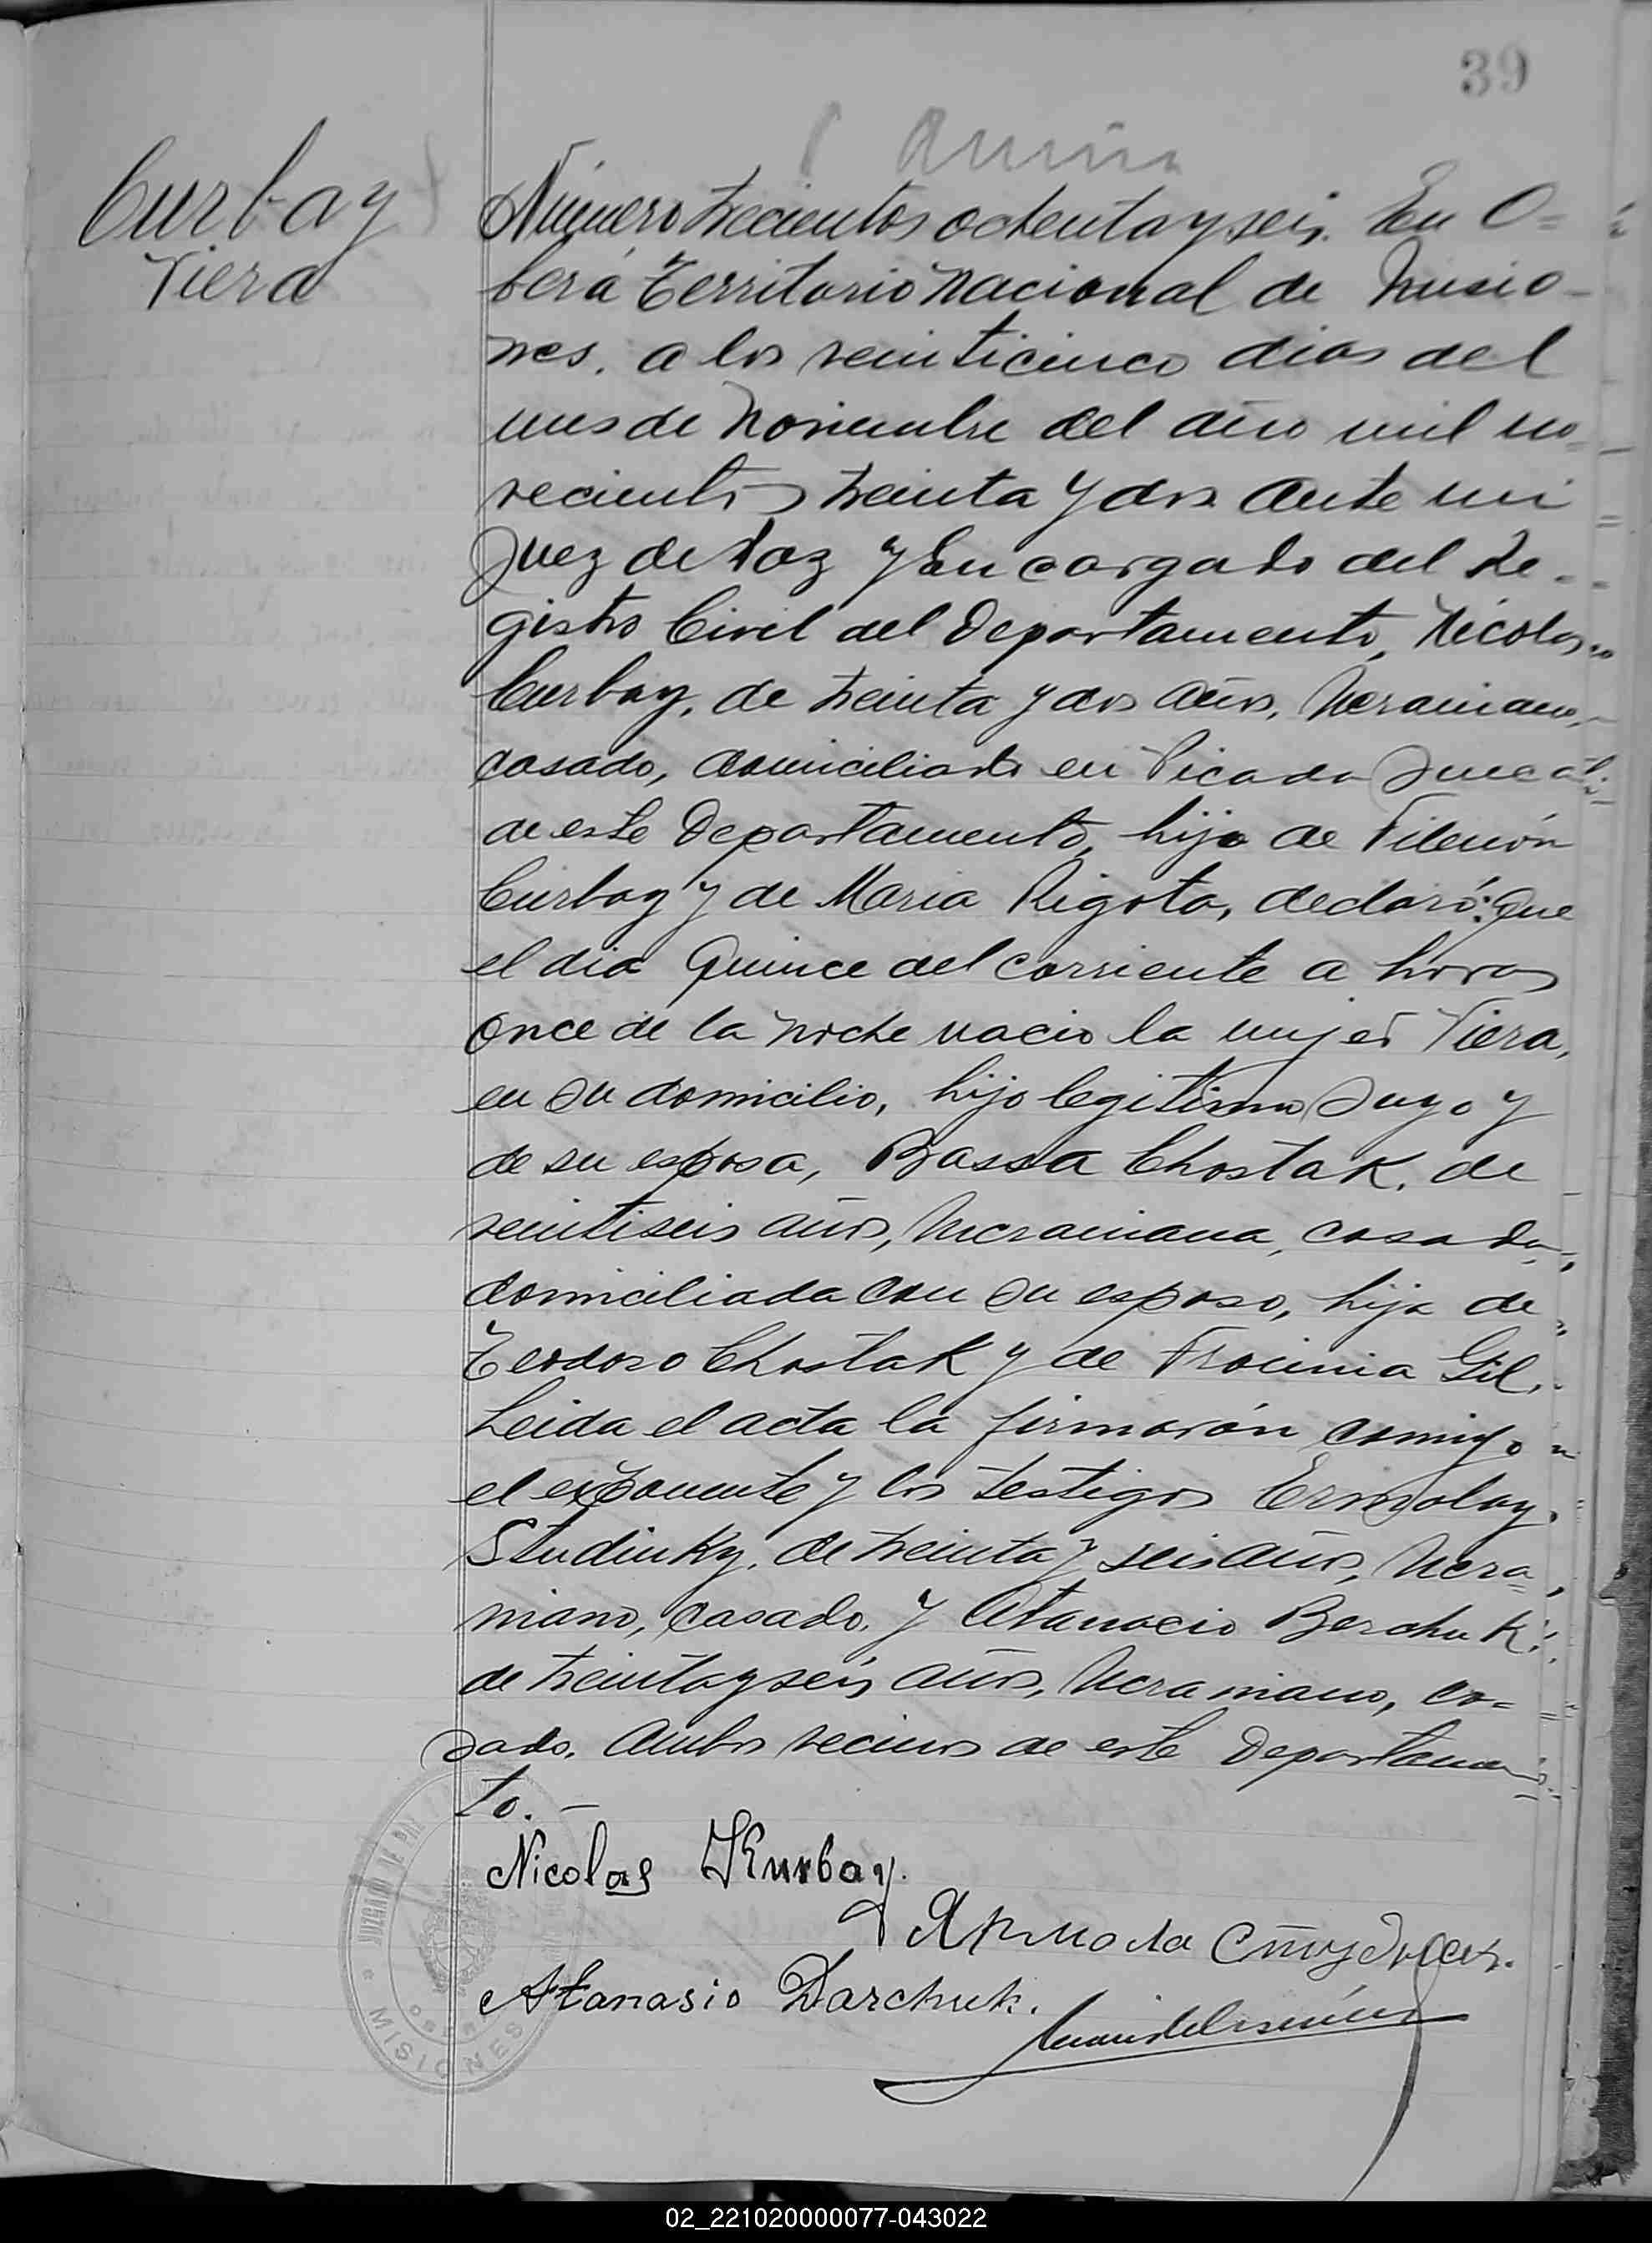 39
Curbay
Viera
Número trecientos ochenta y seis. En O=
berá Territorio Nacional de Misio-
nes. a los veinticinco dias del
mes de Noviembre del año mil no-
vecientos treinta y dos ante mi
Juez de Paz y Encargado del Re-
gistro Civil del Departamento, Nicolas
Curbay, de treinta y dos años, Ucraniano,
casado, domiciliado en Picada
de este Departamento, hijo de Filemón
Curbay y de Maria Rigota, declaró: Que
el dia quince del corriente a horas
once de la noche nacio la mujer Viera,
en su domicilio, hijo legitimo suyo y
de su esposa, Bassa Chostak, de
veintiseis años, Ucraniana, casada,
domiciliada con su esposo, hija de
Teodoro Chostak y de Frocinia Gil.
Leida el acta la firmarón comigo
el exponente y los testigos Ermolay
Studinky, de treinta y seis años, Ucra=
niano, casado, y Atanacio Berchuk
de treinta y seis años, Ucraniano, ca=
sado. Ambos vecinos de este Departamen
to.—
Nicolas Kurbay.
Ярмола
Atanasio Darchuk.
JUZGADO DE PAZ
MISIONES
02_221020000077-043022